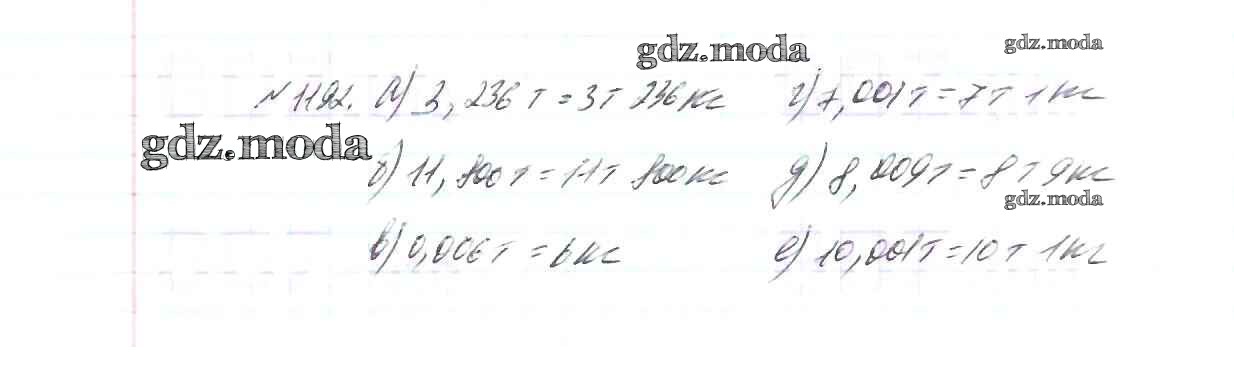 gdz.moda gdz.moda
№1192. а) 3,236 т = 3т 236 кг г) 7,001т = 7т 1 кг
gdz.moda
б) 11,800т = 11т 800кг д) 8,009т = 8т 9кг
gdz.moda
в) 0,006т = 6кг е) 10,001т = 10т 1кг